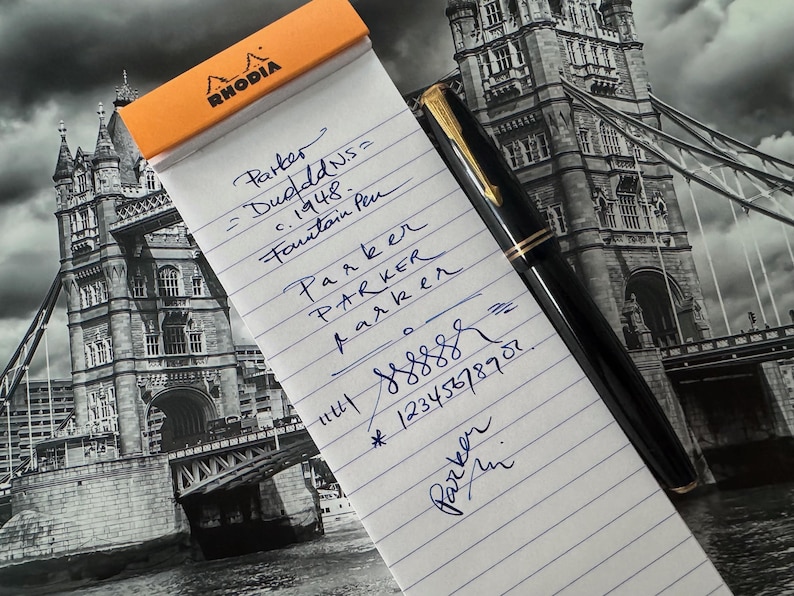 RHODIA
Parker
= Duofold NS =
c. 1948.
Fountain Pen
Parker
PARKER
Parker
* 1234567890
Parker